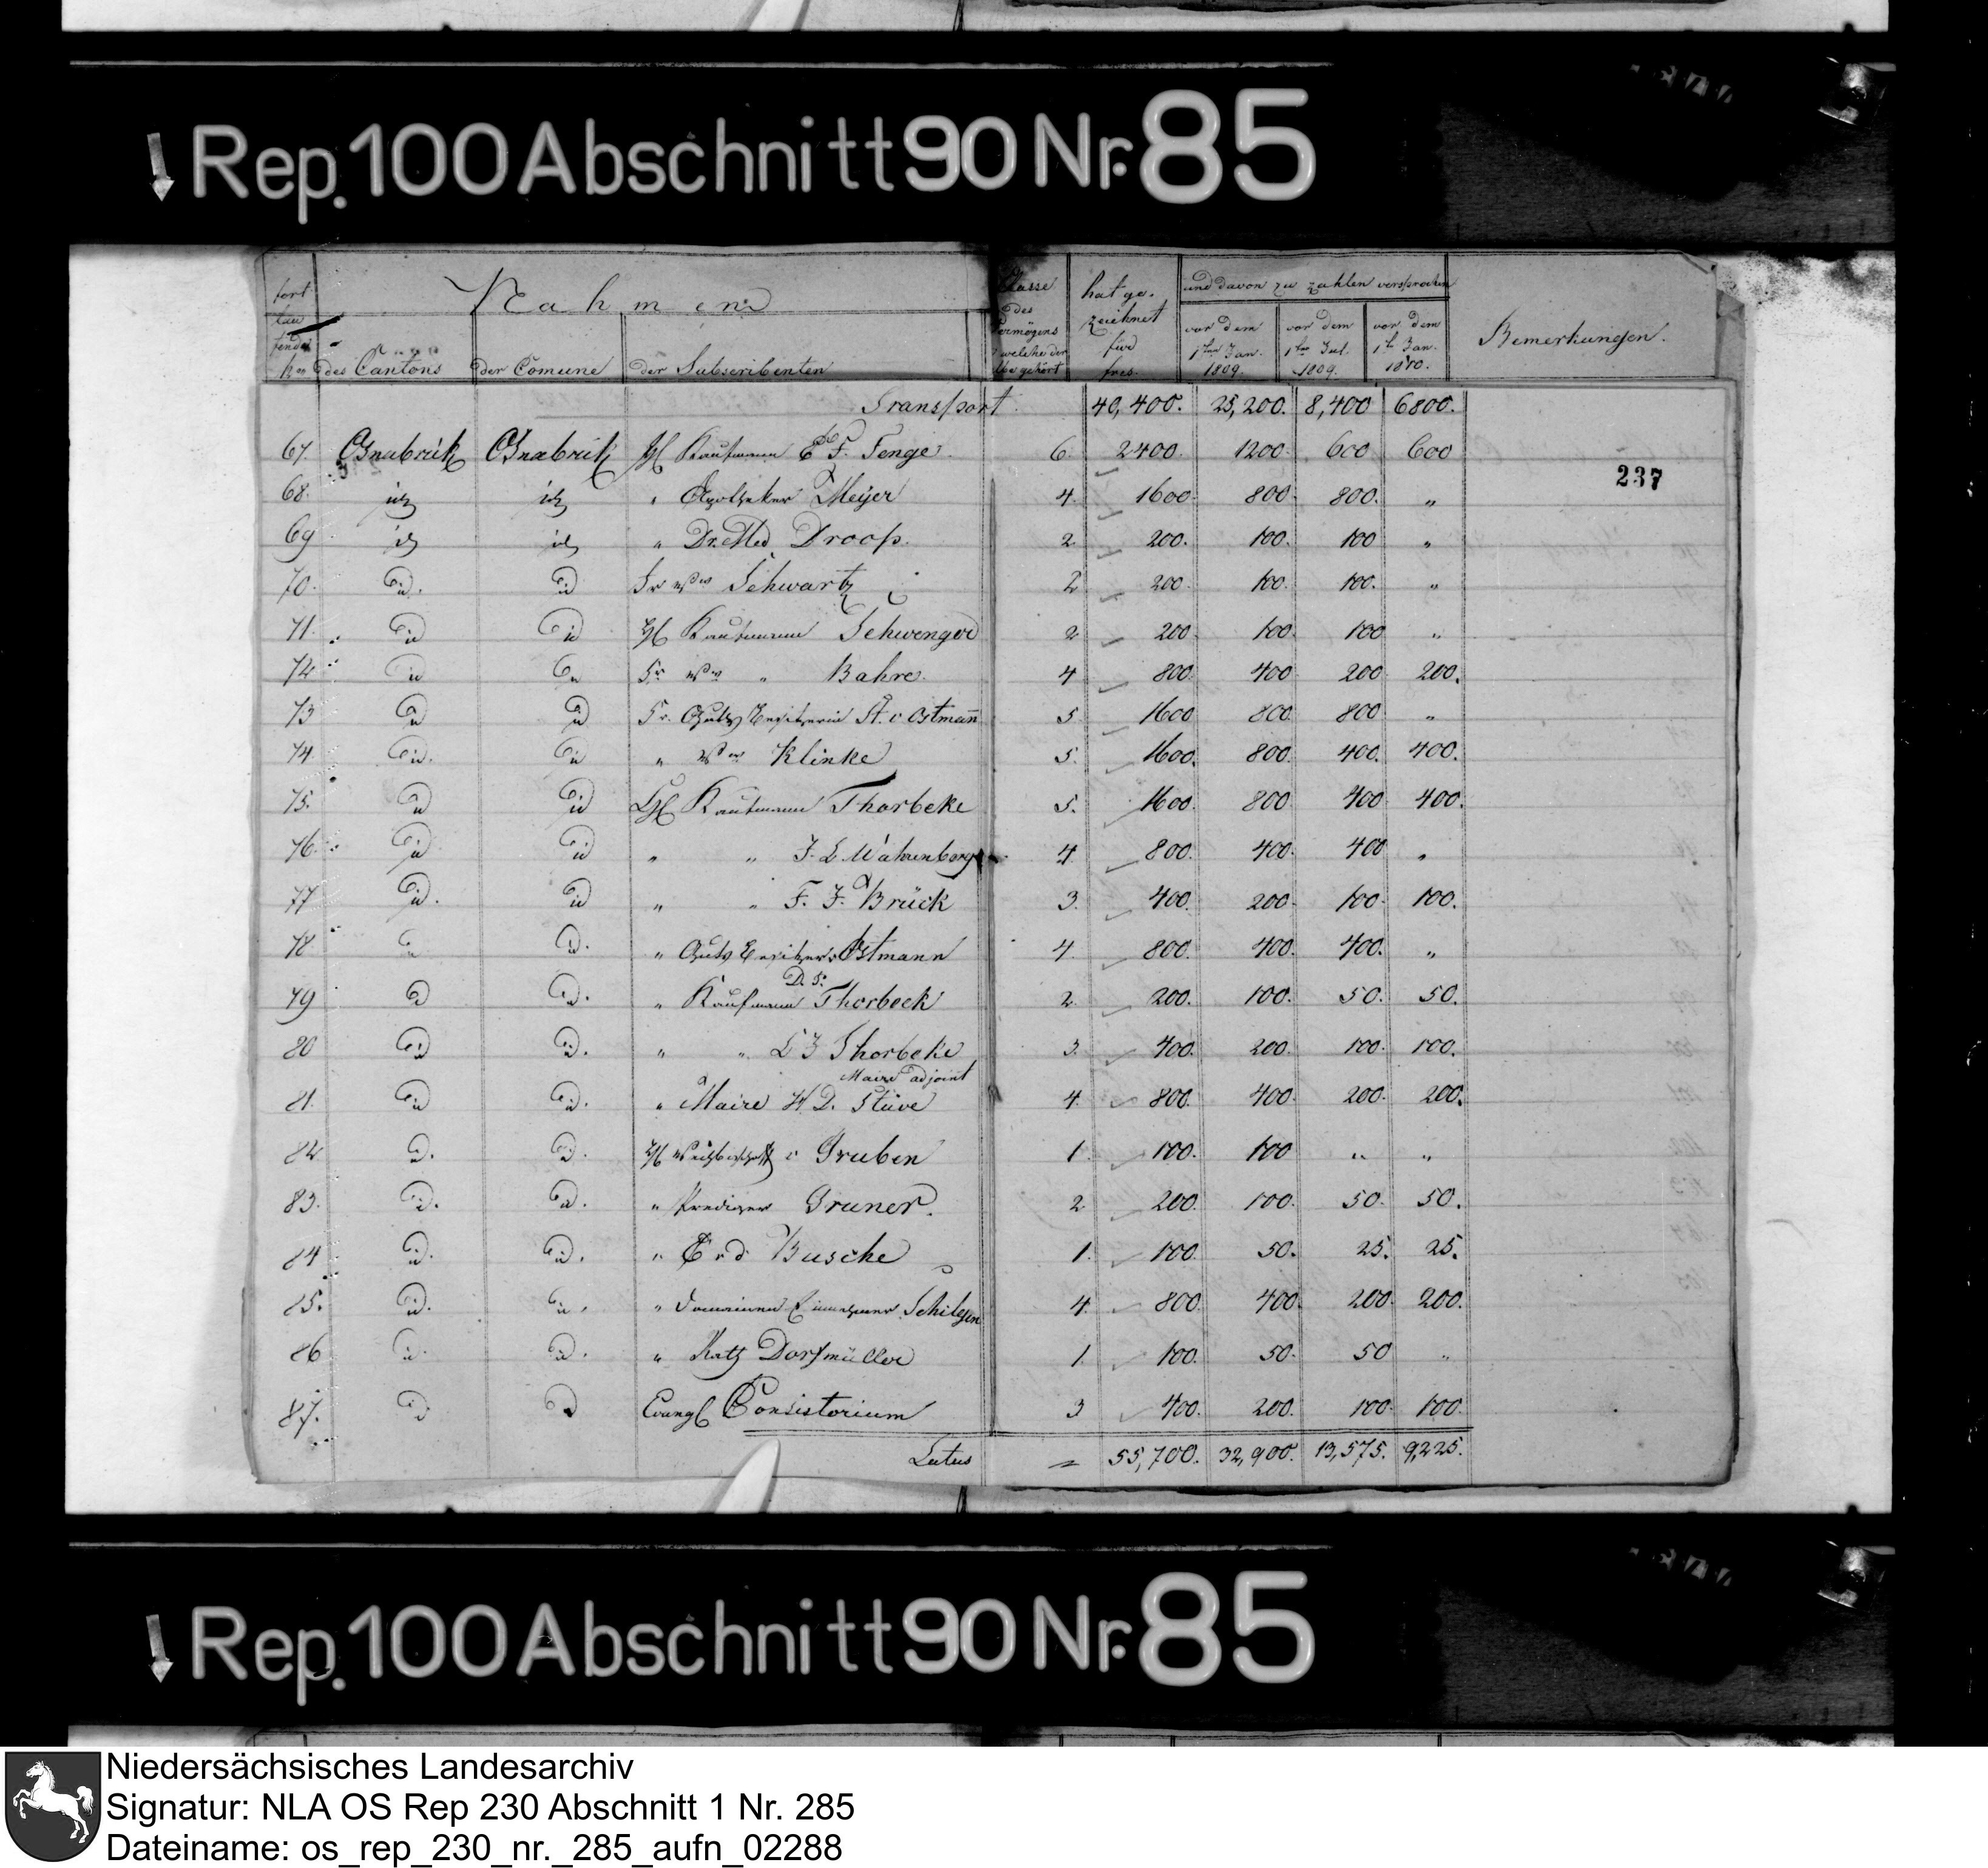 Rep. 100 Abschnitt 90 Nr. 85
fort laufende Nahmen Classe des Vermögens welche gehört hat gezeichnet für frcs. und davon zu zahlen versprochen Bemerkungen.
des Cantons der Comune der Subscribenten vor dem 1ten Jan. 1809. vor dem 1ten Jul. 1809. vor dem 1te Jan. 1810.
Transport 40,400. 25,200. 8,400 6800.
67. Osnabrük Osnabrük H Kaufmann F. Tenge. 6. 2400. 1200. 600 600
237
68. id id " Apotheker Meyer 4. 1600. 800. 800. "
69 id id " Dr. Med Droop. 2 200. 100. 100 "
70. id. id Fr Ww Schwartz 2 200. 100. 100. "
71. id id H Kaufmann Schwenger 2 200 100. 100 "
72 id id Fr Ww " Bahre. 4 800. 400 200 200.
73 id id Fr. Guts Besitzerin v. Ostmann 5 1600 800. 800 "
74. id. id " Ww Klinke 5. 1600. 800. 400. 400.
75. id id H Kaufmann Thorbeke 5. 1600. 800 400 400.
76. id id " " Wahrenborg 4. 800. 400. 400 "
77 id. id " " F. F. Brück 3. 400. 200. 100. 100.
78. id id. " Guts Besitzer Ostmann 4. 800. 400. 400. "
79 id id. " Kaufmann D. F. Thorbeck 2. 200. 100. 50. 50.
80 id id. " " Thorbeke 3. 400. 200. 100. 100.
Maire adjoint
81. id id. " Maire H. D. Stüve 4. 800. 400. 200. 200.
82 id. id. H Weihbischoff v Gruben 1. 100. 100 " "
83. id. id. " Prediger Gruner. 2 200. 100. 50. 50.
84 id. id. " v d Busche 1. 100. 50. 25. 25.
85. id. id. " Domainen Einnehmer Schilgen 4. 800 400. 200. 200.
86 id. id. " Dorfmüller 1. 100. 50. 50 "
87. id id Evangl Consistorium 3 400. 200. 100. 100.
Latus = 55,700. 32,900. 13,575. 9,225.
Rep. 100 Abschnitt 90 Nr. 85
Niedersächsisches Landesarchiv
Signatur: NLA OS Rep 230 Abschnitt 1 Nr. 285
Dateiname: os_rep_230_nr._285_aufn_02288